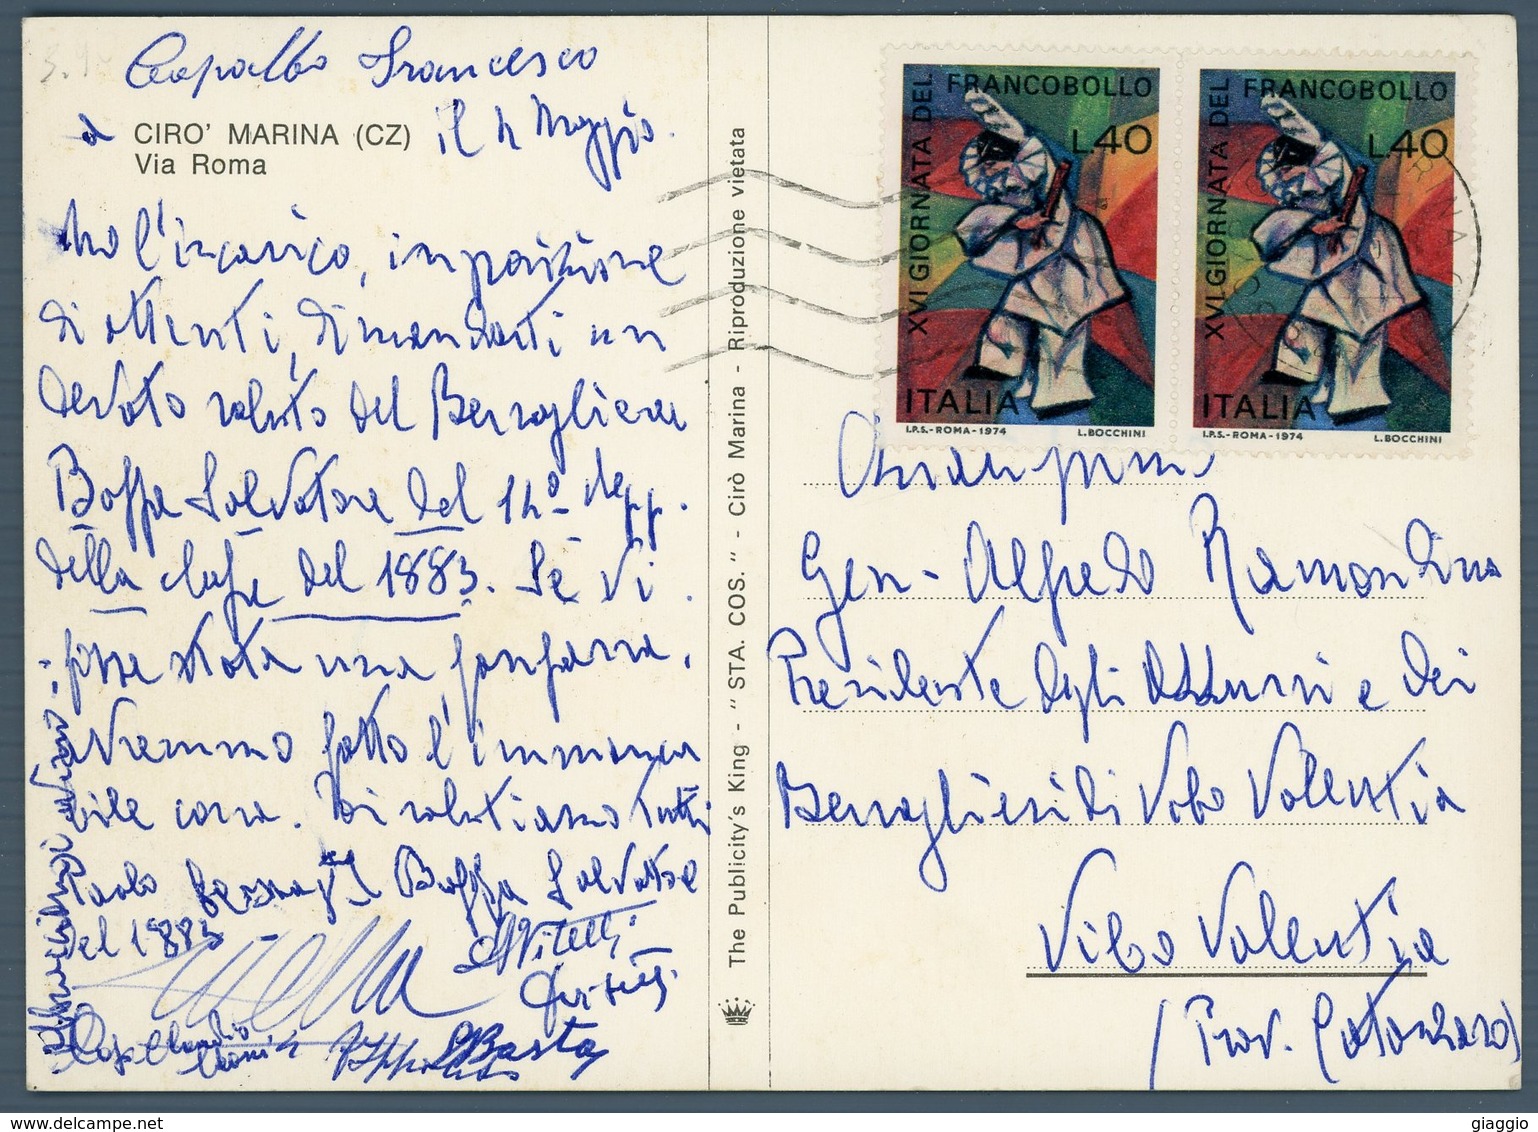 Capalbo Francesco
a CIRO' MARINA (CZ) il 4 Maggio.
Via Roma
Ho l'incarico, imposizione
di ottenti, dimandarti un
devoto saluto del Bersagliere
Boffa Salvatore del 14º depp.
della classe del 1883. Se vi
fosse stata una fanfara,
avremmo fatto l'immanca
bile corsa. Noi salutiamo tutti
Paolo Boffa Salvatore
del 1883
Vitetti
Ippolito Basta
The Publicity's King - "STA. COS." - Cirò Marina - Riproduzione vietata
XVI GIORNATA DEL FRANCOBOLLO
L.40
ITALIA
I.P.S.-ROMA-1974 L. BOCCHINI
XVI GIORNATA DEL FRANCOBOLLO
L.40
ITALIA
I.P.S.-ROMA-1974 L. BOCCHINI
Gen. Alfredo Ramondino
Presidente degli Azzurri e dei
Bersaglieri di Vibo Valentia
Vibo Valentia
(Prov. Catanzaro)
delcampe.net
giaggio